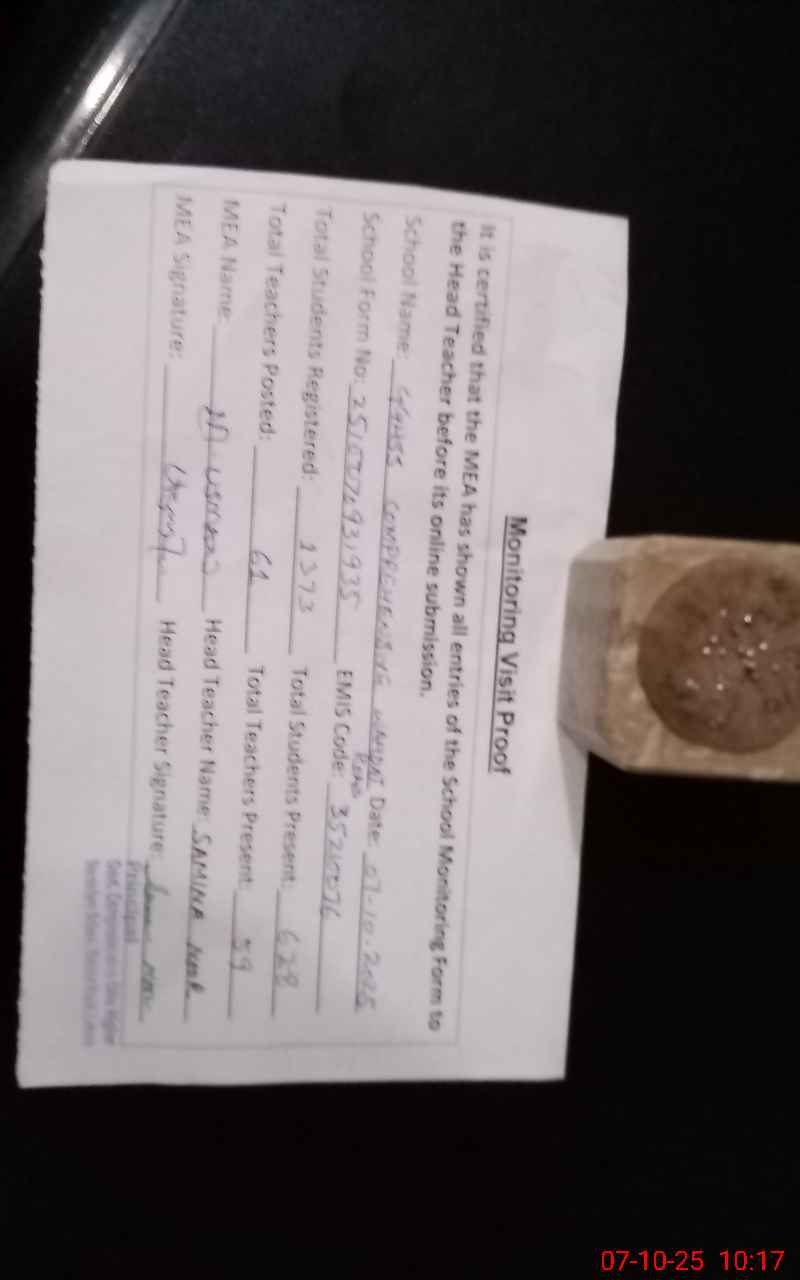 Monitoring Visit Proof
It is certified that the MEA has shown all entries of the School Monitoring Form to
the Head Teacher before its online submission.
School Name: GGHSS COMPREHENSIVE Road Date: 07-10-2025
School Form No: EMIS Code:
Total Students Registered: 1373 Total Students Present: 628
Total Teachers Posted: 61 Total Teachers Present: 59
MEA Name: Head Teacher Name: SAMINA NOOR
MEA Signature: Head Teacher Signature:
Principal
07-10-25 10:17